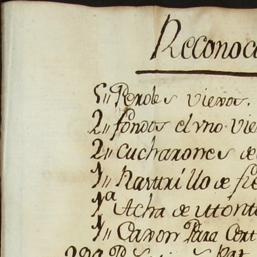 Reconoc
5,, Peroles viejos.
2,, fondos el vno vie
2,, cucharones de
1,, de fie
1ª Acha de
1,, Caxon Para Cort